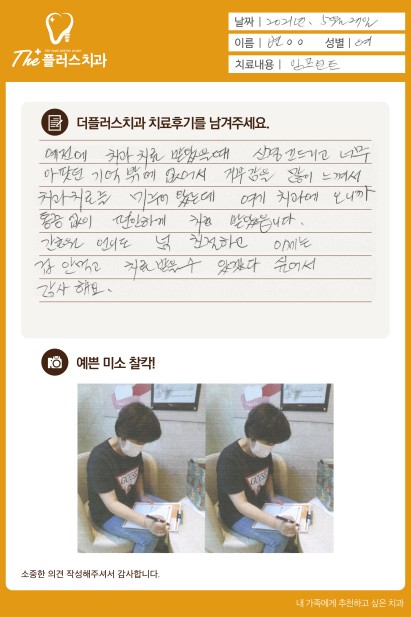 The 플러스치과
날짜 | 2021년. 5월 29일
이름 | 변 ○ ○ 성별 | 여
치료내용 | 임프란트
더플러스치과 치료후기를 남겨주세요.
예전에 치과 치료 받았을때 신경 건드리고 너무
아팠던 기억 밖에 없어서 거부감을 많이 느껴서
치과치료를 였는데 여기 치과에 오니까
통증 없이 편안하게 치료 받았습니다.
간호원 언니도 넘 친절하고 이제는
겁 안먹고 치료 받을수 있겠다 싶어서
감사 해요.
예쁜 미소 찰칵!
GUESS
소중한 의견 작성해주셔서 감사합니다.
내 가족에게 추천하고 싶은 치과